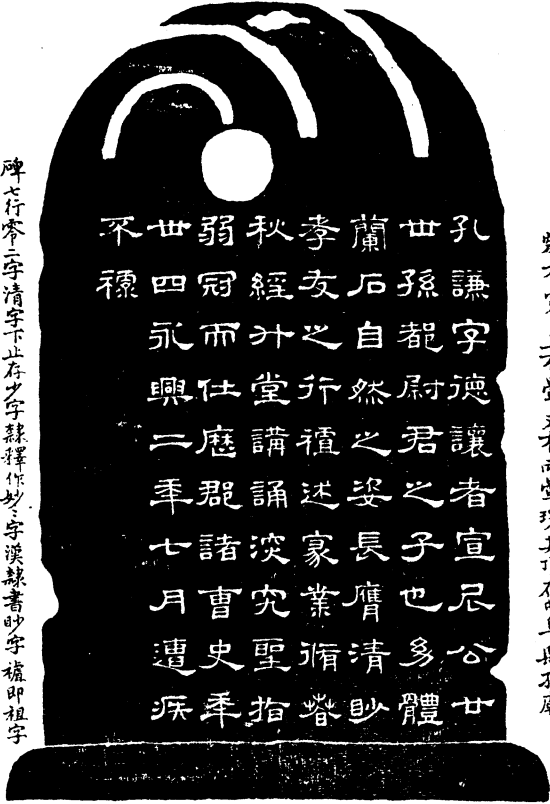 孔謙字德讓者宣尼公廿
世孫都尉君之子也幼體
蘭石自然之姿長膺清眇
孝友之行述家業脩春
秋經升堂講誦深究聖指
弱冠而仕歷郡諸曹史年
卅四永興二年七月遭疾
不祿
碑七行零二字清字下止存少字隸釋作妙〻字漢隸書眇字即祖字